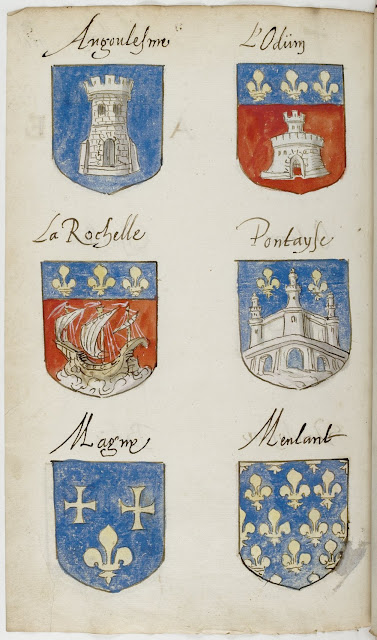 Angoulesme
L'Odüm
La Rochelle
Pontayse
Magny
Menlant